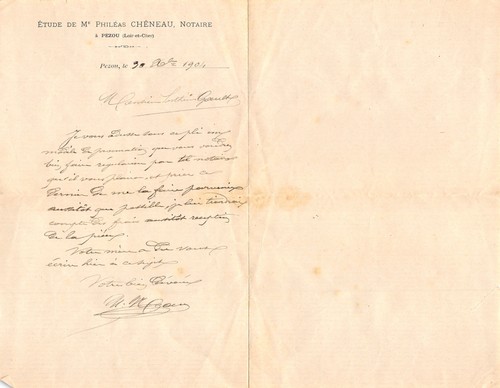 ÉTUDE DE Mᵉ PHILÉAS CHÉNEAU, NOTAIRE
A PEZOU (Loir-et-Cher)
Pezou, le 30 1904
Gault
Je vous sous ce pli un
modèle de procuration que vous voudrez
bien faire régulariser par le notaire
qu'il vous plaira, et prier ce
dernier de me la faire parvenir
aussitôt que possible, je lui tiendrai
compte des frais aussitôt réception
de la pièce.
Votre mère a dû vous
écrire hier à ce sujet
Votre bien dévoué